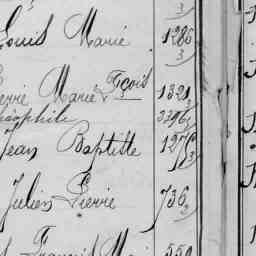 3
Louis Marie 1286
3
Pierre Marie Fçois 1321
3
Théophile 3396
3
Jean Baptiste 1276
3
Julien Pierre 736
3
François 550